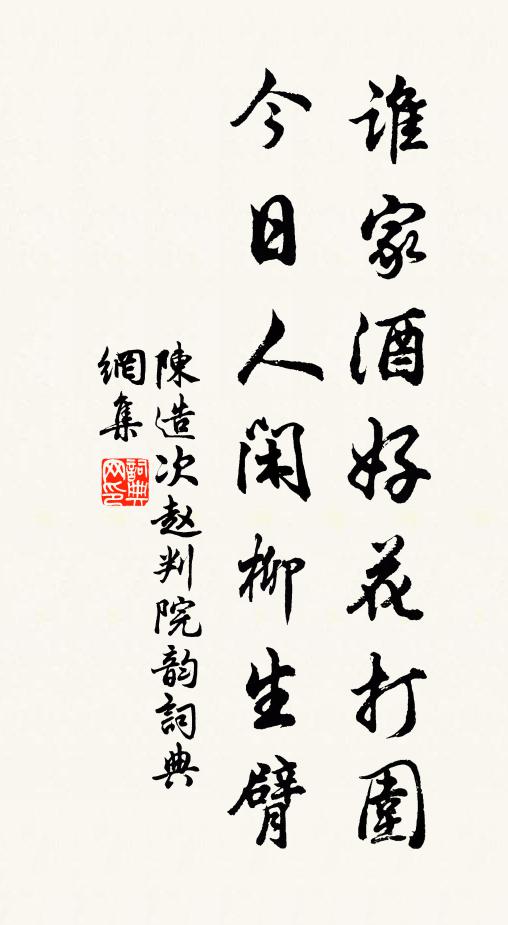 誰家酒好花打圍
今日人閑柳生臂
陳造次赵判院韵詞典
網集
詞典
网印